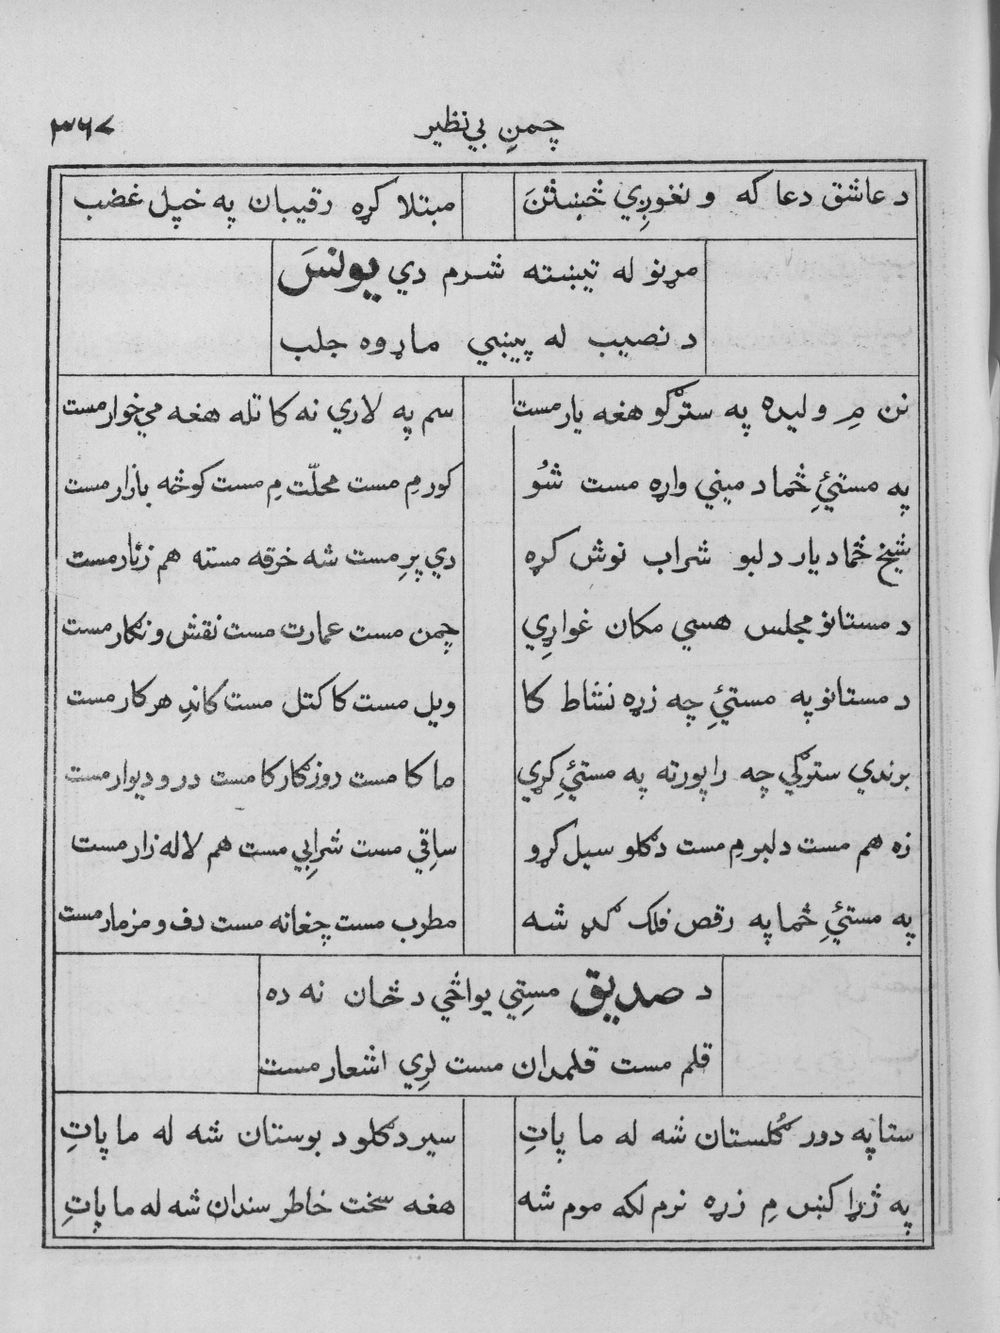 چمنِ بي نظير ۳۶۷
د عاشق دعا که و نغوږي څښتنَ مبتلا کړه رقيبان په خپل غضب
مړنو له تيښته شرم دي يونسَ
د نصيب له پيښي ماړوه جلب
نن مِ وليده په سترګو هغه يار مست سم په لاري نه کا تله هغه مي خوار مست
په مستئِ څما د ميني واړه مست شُو کور مِ مست محلّت مِ مست کوڅه بازار مست
شيخ څما د يار د لبو شراب نوش کړه دي پرِ مست شه خرقه مسته هم زنّار مست
د مستانو مجلس هسي مکان غواړِي چمن مست عمارت مست نقش و نګار مست
د مستانو په مستئِ چه زړه نشاط کا ويل مست کا کتل مست کاندِ هر کار مست
برندي سترګي چه را پورته په مستئِ کړي ما کا مست روزګار کا مست در و ديوار مست
زه هم مست دلبر مِ مست د ګلو سيل کړو ساقِي مست شرابِي مست هم لاله زار مست
په مستئِ څما په رقص فلک ګډ شه مطرب مست چغانه مست دف و مزمار مست
د صديق مستِي يواځي د ځان نه ده
قلم مست قلمدان مست لرِي اشعار مست
ستا په دور ګُلستان شه له ما پاتِ سير د ګلو د بوستان شه له ما پاتِ
په ژړا کښ مِ زړه نرم لکه موم شه هغه سخت خاطر سندان شه له ما پاتِ